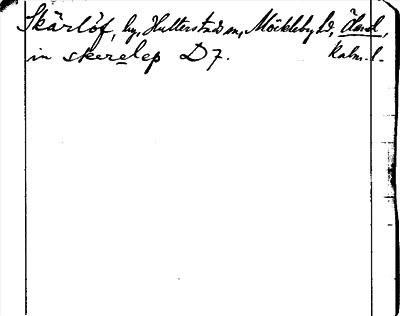 Skärlöf, by, Hulterstad sn, Möckleby hd, Öland,
in skerelep D 7. Kalm. l.